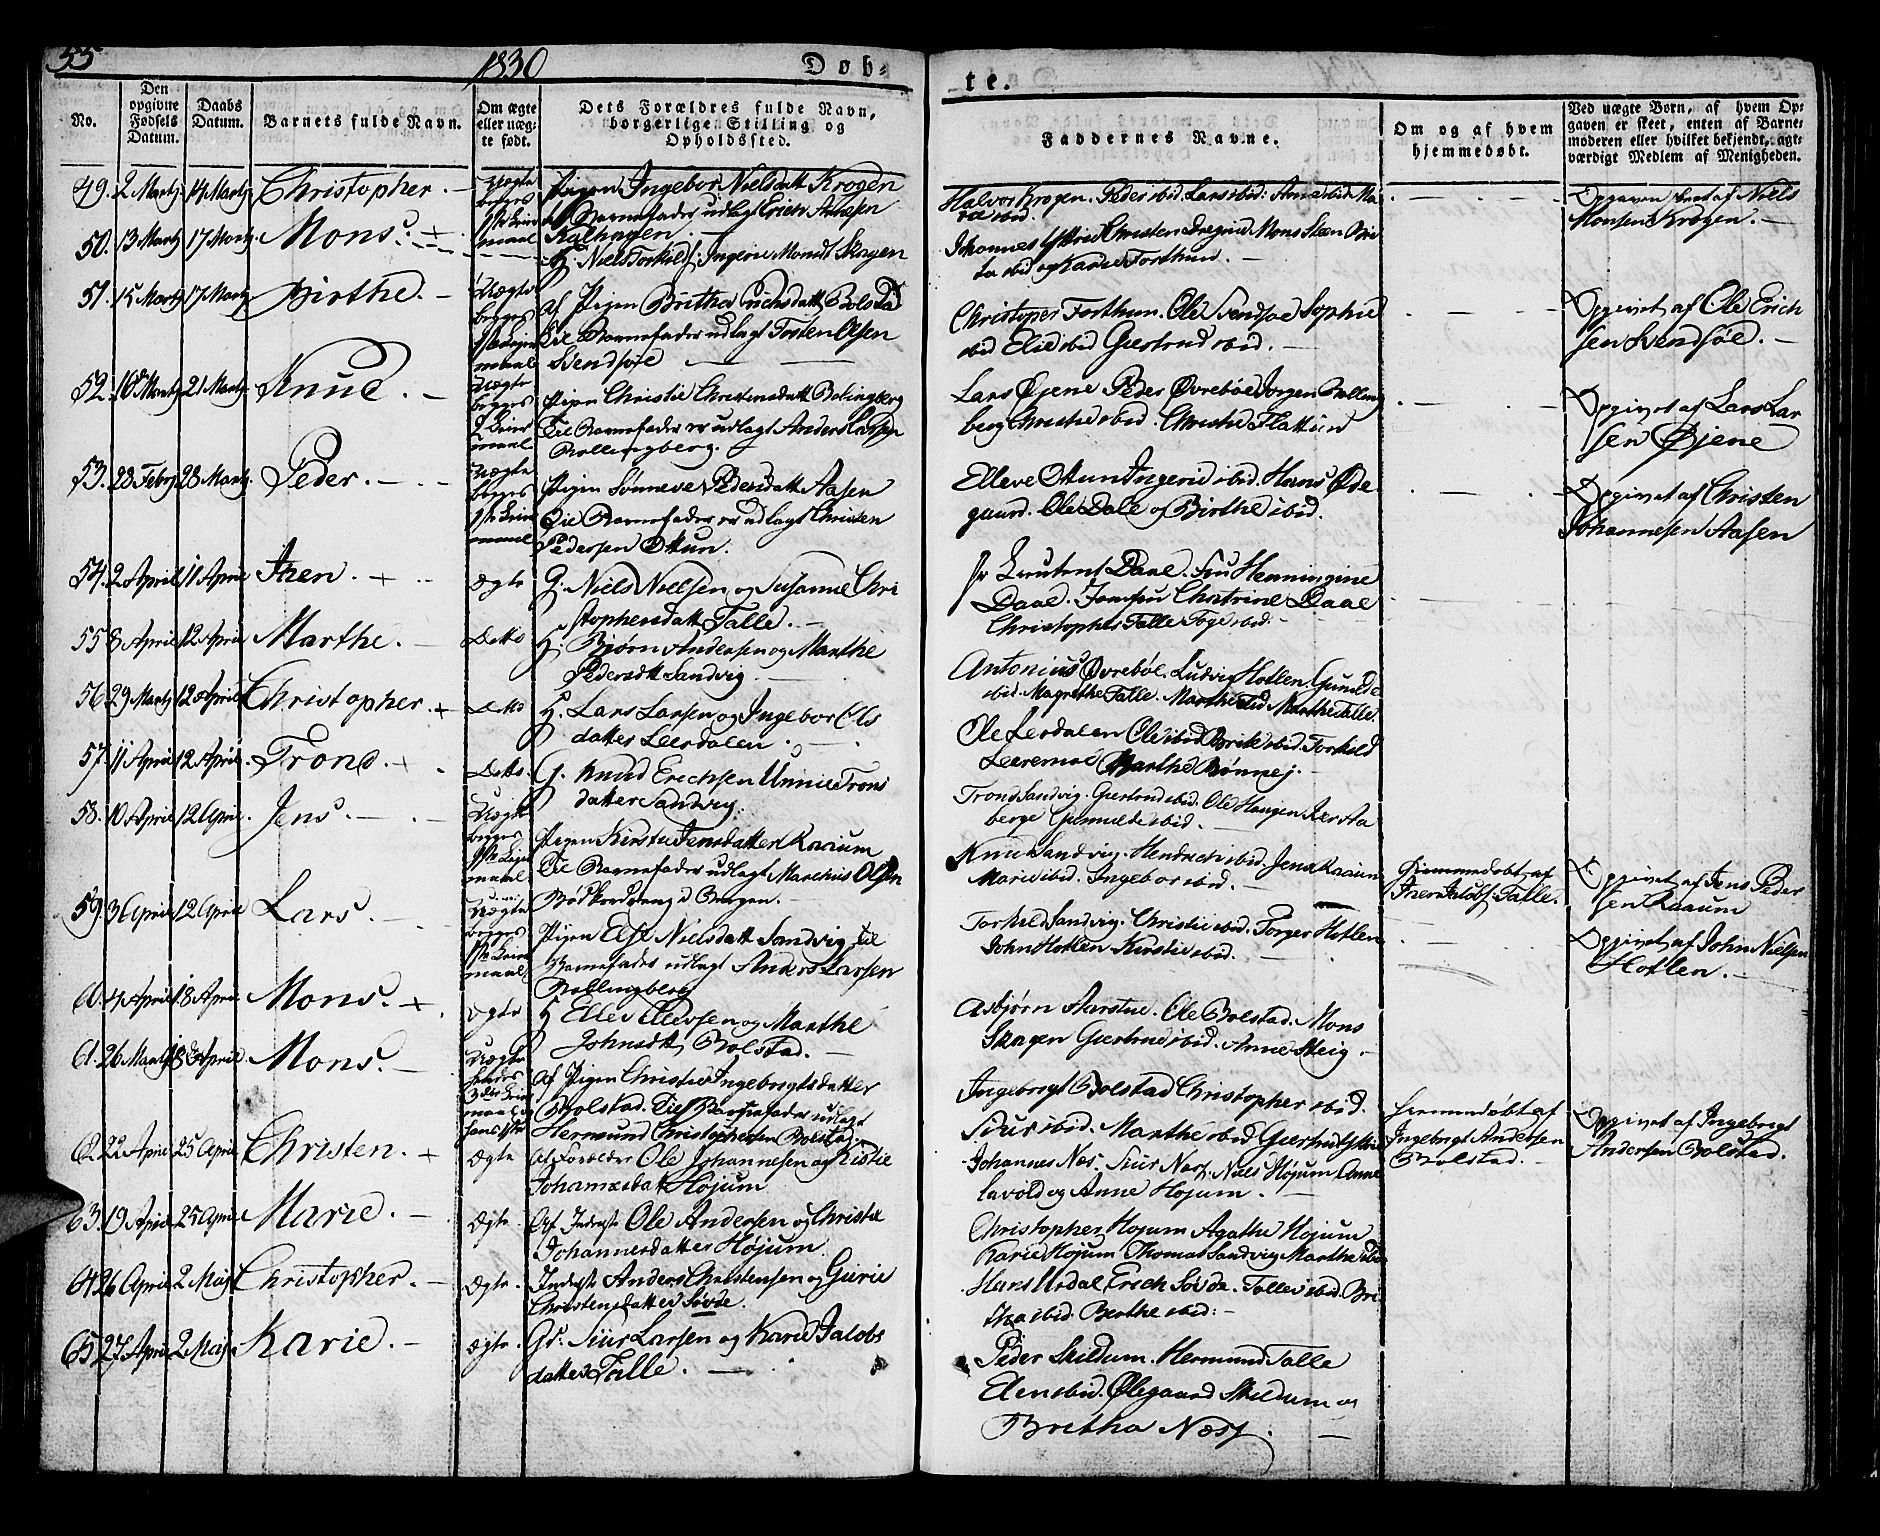 55
1830
Døb-
te.
No.
Den
opgivne
Fødsels
Datum.
Daabs
Datum.
Barnets fulde Navn.
Om ægte
eller uæg-
te født.
Dets Forældres fulde Navn,
borgerlige Stilling og
Opholdssted.
Faddernes Navne.
Om og af hvem
hjemmedøbt.
Ved uægte Børn, af hvem Op-
gaven er skeet, enten af Barne-
moderen eller hvilket bekjendt, agt-
værdigt Medlem af Menigheden.
49. 2 Martz 14 Martz Christopher. Uægte
begges
1ste Leier
maal
Pigen Ingebor Nielsdatt Krogen
Barnefader udlagt Erich
Kalhagen.
Halvor Krogen. Peder ibid. Lars ibid: Anna ibid Ma
rie ibid.
Opgaven skeet af Niels
Monsen Krogen.
50. 13 Martz 17 Martz Mons.
H. Niels Torkilds. Ingerie Monsdt Skagen
Johannes Christen Dregnie Mons Steen Bri
ta ibid og Karie Forthun.
51. 15 Martz 17 Martz Birthe. Uægte
begges
1ste Leier
maal
af Pigen Britha datt Bolstad
Til Barnefader udlagt Torsten Olsen
Svendsøe
Christopher Forthun. Ole Svendsøe Sophie
ibid Elie ibid Giertrud ibid.
Opgivet af Ole Erich
sen Svendsøe.
52. 16d Martz 21 Martz Knud. Uægte
begges
Leier
maal
Pigen Christie Christensdatt Bolingberg
Til Barnefader er udlagt Anders Larsen
Bollingberg.
Lars Øjene Peder Øvrebøe Jørgen Bolling
berg Christie ibid. Christie Flattun
Opgivet af Lars Lar
sen Øjene
53. 28 Febr 28 Martz Peder. Uægte
begges
1ste Leier
maal
Pigen Sønneve Pedersdatt Aasen
Til Barnefader er udlagt Christen
Pedersen Ottun.
Elleve Ottun Ingerid ibid. Hans Øde
gaard. Ole Dale og Birthe ibid.
Opgivet af Christen
Johannesen Aasen
54. 2 April 11 April Iren. Ægte G. Niels Nielsen og Susanne Chri
stophersdatt Talle.
Hr Lieutenant Daae. Fru Henningine
Daae. Jomfru Chatrine Daae
Christopher Talle Foge ibid.
55 8 April 12 April Marthe. Detto H: Bjørn Andersen og Marthe
Pedersdtt Sandvig.
Antonius Øvrebøe. Ludvig Hotlen. Gunilde
ibid. Magrethe Talle. Marthe ibid Marthe Talle.
56 29 Martz 12 April Christopher. Detto H. Lars Larsen og Ingebor Ols
datter Leerdalen.
Ole Lerdalen Ole ibid Brite ibid. Torkild
Leeremoe Marthe Rønnej.
57. 11 April 12 April. Trond. Detto. G. Knud Erichsen Unnie Trons
datter Sandvig.
Trond Sandvig. Giertrud ibid. Ole Haugen Kersta
berge Gunnilde ibid.
58. 10 April 12 April. Jens. Uægte
begges
1ste Leier
maal
Pigen Kirstie Jensdatter Kraaum
Til Barnefader udlagt Marchus Olsen
Bødkerdreng i Bergen.
Knud Sandvig. Hendrich ibid. Jens Kraaum
Marie ibid. Ingebor ibid.
Hjemmedøbt af
Iver Talle.
Opgivet af Jens Peder
sen Kraaum
59. 3 April 12 April Lars. Uægte
begges
1ste Leier
maal
Pigen Else Nielsdatt Sandvig til
Barnefader udlagt Anders Larsen
Bollingberg
Torkild Sandvig. Christie ibid. Torger Hotlen
John Hotlen Kirstie ibid.
Opgivet af John Nielsen
Hotlen.
60. 4 April 18 April Mons. Ægte H Ellev Ellevsen og Marthe
Johnsdt Bolstad.
Asbjørn Aarstue. Ole Bolstad. Mons
Skagen Giertrud ibid. Anne Steig.
61. 26 Martz 18 April Mons. Uægte
af Pigen Christie Ingebrogtsdatter
Bolstad. Til Barnefader udlagt
Hermund Christophersen Bolstad.
Ingebrogt Bolstad Christopher ibid.
Siur ibid. Marthe ibid Giertrud
Hjemmedøbt af
Ingebregt Andersen
Bolstad.
Opgivet af Ingebregt
Andersen Bolstad.
62. 22 April 25 April Christen. Ægte Forælder Ole Johannesen og Kistie
Johannesdatt Højum
Johannes Næs. Siur Næs. Niels Højum Anne
Lavold og Anne Højum.
63. 19 April 25 April Marie. Ægte. Af Inderste Ole Andersen og Christie
Johannesdatter Højum.
Christopher Højum Agathe Højum
Karie Højum Thomas Sandvig Marthe ibid
64 26 April 2 Maj Christopher. Ægte. Inderste Anders Christensen og Gurie
Christensdatter Søvde.
Hans Urdal Erich Søvde. Tolles ibid. Bri
tha ibid. Berthe ibid.
65 27 April 2 Maj Karie. Ægte. Gr. Siur Larsen og Karie Jacobs
datter Talle.
Peder Skildum. Hermund Talle
Elen ibid. Ølegaard Skildum og
Britha Næss.